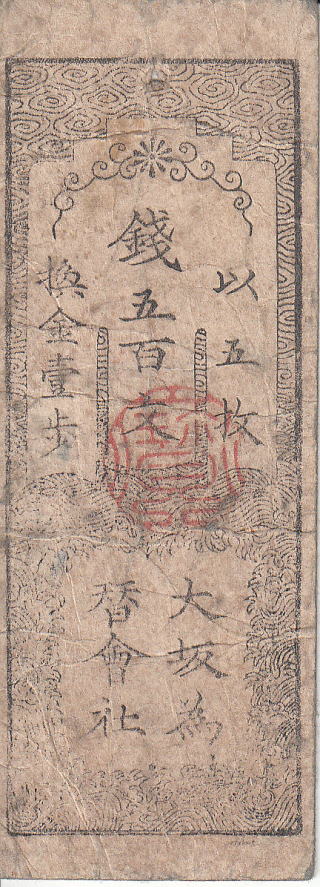 以五枚
錢五百文
換金壹歩
大坂為
替會社